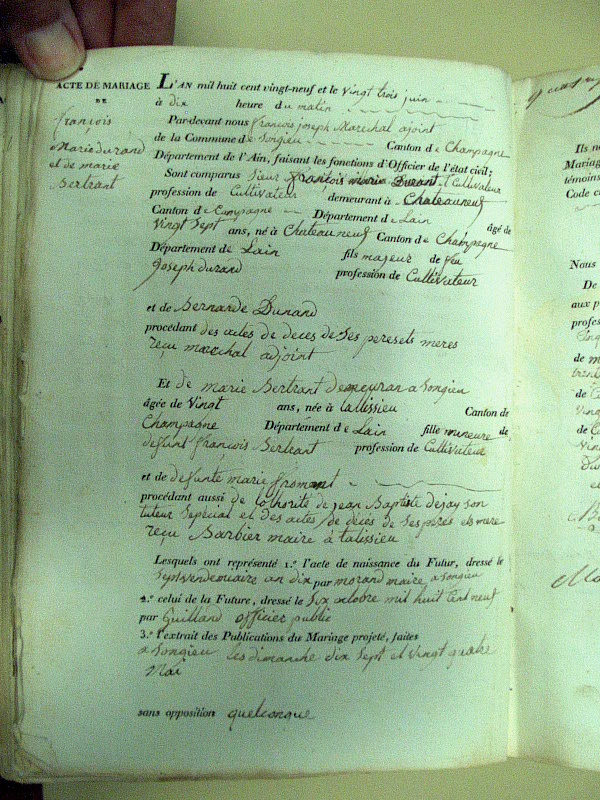 ACTE DE MARIAGE
DE
françois
Marie durand
et de marie
Bertrant
L'AN mil huit cent vingt-neuf et le vingt trois juin
à dix heure du matin
Par-devant nous françois joseph Marechal ajoint
de la Commune de Songieu Canton de Champagne
Département de l'Ain, faisant les fonctions d'Officier de l'état civil;
Sont comparus Sieur françois marie Durant Cultivateur
profession de Cultivateur demeurant à Chateauneuf
Canton de Campagne Département de Lain âgé de
Vingt Sept ans, né à Chateauneuf Canton de Champagne
Département de Lain fils majeur de feu
Joseph durand profession de Cultivateur
et de Bernarde Dunand
procédant des actes de deces de Ses peres ets meres
reçu marechal adjoint
Et de marie Bertrant demeuran a Songieu
âgée de Vingt ans, née à tallissieu Canton de
Champagne Département de Lain fille mineure de
defunt françois Bertrant profession de Cultivateur
et de defunte marie fromant
procédant aussi de lothorité de jean Baptiste dejay Son
tuteur Sepécial et des actes de décés de Ses peres ets mere
reçu Barbier maire à talissieu
Lesquels ont représenté 1.º l'acte de naissance du Futur, dressé le
Sept vendemiaire an dix par morand maire a Songieu
2.º celui de la Future, dressé le Six octobre mil huit Cent neuf
par Guilland officier public
3.º l'extrait des Publications du Mariage projeté, faites
a Songieu les dimanche dix Sept et vingt quatre
Mai
sans opposition quelconque
Ils n
Mariag
témoins
Code c
Nous
De
aux p
profes
de m
de
de